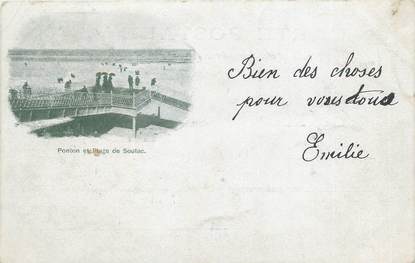 Bien des choses
pour vous tous
Emilie
Ponton et Plage de Soulac.